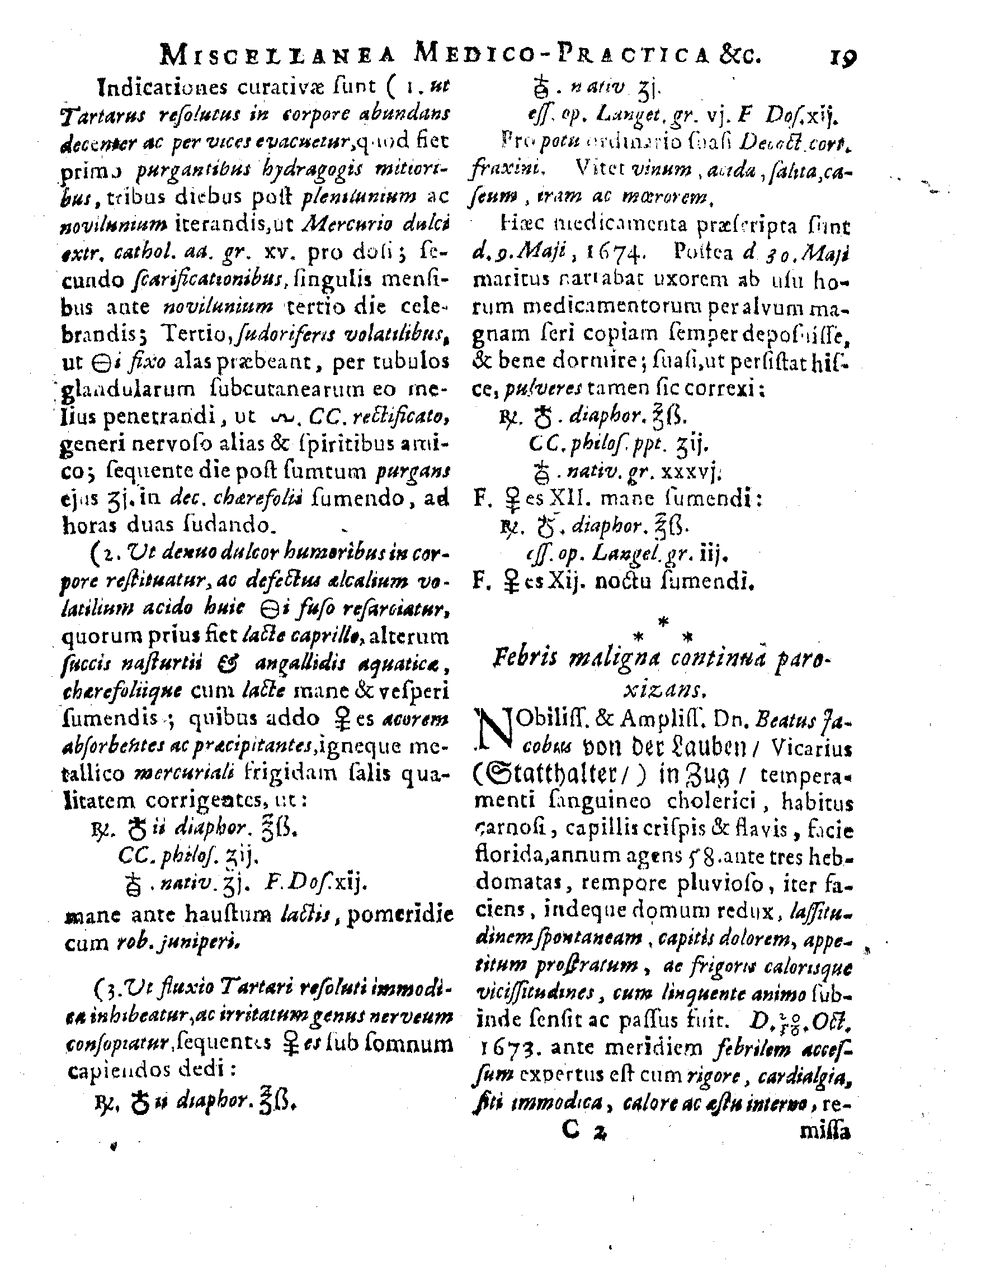 MISCELLANEA MEDICO-PRACTICA &c. 19
Indicationes curativæ ſunt ( 1. ut
Tartarus reſolutus in corpore abundans
decenter ac per vices evacuetur, quod fiet
primo purgantibus hydragogis mitiori-
bus, tribus diebus poſt plenilunium ac
novilunium iterandis, ut Mercurio dulci
extr. cathol. aa. gr. xv. pro doſi; ſe-
cundo ſcarificationibus, ſingulis menſi-
bus ante novilunium tertio die cele-
brandis; Tertio, ſudoriferis volatilibus,
ut 🜔i fixo alas præbeant, per tubulos
glandularum ſubcutanearum eo me-
lius penetrandi, ut CC. rectificato,
generi nervoſo alias & ſpiritibus ami-
co; ſequente die poſt ſumtum purgans
ejus ʒj. in dec. chærefolii ſumendo, ad
horas duas ſudando.
(2. Ut denuo dulcor humoribus in cor-
pore reſtituatur, ac defectus alcalium vo-
latilium acido huic 🜔i fuſo reſarciatur,
quorum prius fiet lacte caprillo, alterum
ſuccis naſturtii & angallidis aquaticæ,
chærefoliique cum lacte mane & veſperi
ſumendis; quibus addo ♀es acorem
abſorbentes ac præcipitantes, igneque me-
tallico mercuriali frigidam ſalis qua-
litatem corrigentes, ut:
℞. ♁ii diaphor. ℥ß.
CC. philoſ. ʒij.
nativ. ʒj. F. Doſ. xij.
mane ante hauſtum lactis, pomeridie
cum rob. juniperi.
(3. Ut fluxio Tartari reſoluti immodi-
ca inhibeatur, ac irritatum genus nerveum
conſopiatur, ſequentes ♀es ſub ſomnum
capiendos dedi:
℞. ♁ii diaphor. ℥ß.
nativ ʒj.
eſſ. op. Langet. gr. vj. F Doſ. xij.
Pro potu ordinario ſuaſi Decoct. cort.
fraxini. Vitet vinum, acida, ſalita, ca-
ſeum, iram ac mœrorem.
Hæc medicamenta præſcripta ſunt
d. 9. Maji, 1674. Poſtea d 30. Maji
maritus narrabat uxorem ab uſu ho-
rum medicamentorum per alvum ma-
gnam ſeri copiam ſemper depoſuiſſe,
& bene dormire; ſuaſi, ut perſiſtat hiſ-
ce, pulveres tamen ſic correxi:
℞. ♁. diaphor. ℥ß.
CC. philoſ. ppt. ʒij.
nativ. gr. xxxvj.
F. ♀es XII. mane ſumendi:
℞. ♁. diaphor. ℥ß.
eſſ. op. Langel. gr. iij.
F. ♀es Xij. noctu ſumendi.
* * *
Febris maligna continuâ paro-
xizans.
NObiliſſ. & Ampliſſ. Dn. Beatus Ja-
cobus von der Lauben / Vicarius
(Statthalter /) in Zug / tempera-
menti ſanguineo cholerici, habitus
carnoſi, capillis criſpis & flavis, facie
florida, annum agens 58. ante tres heb-
domatas, tempore pluvioſo, iter fa-
ciens, indeque domum redux, laſſitu-
dinem ſpontaneam, capitis dolorem, appe-
titum proſtratum, ac frigoris calorisque
viciſſitudines, cum linquente animo ſub-
inde ſenſit ac paſſus fuit. D. Oct.
1673. ante meridiem febrilem acceſ-
ſum expertus eſt cum rigore, cardialgia,
ſiti immodica, calore ac æſtu interno, re-
C 2 miſſa